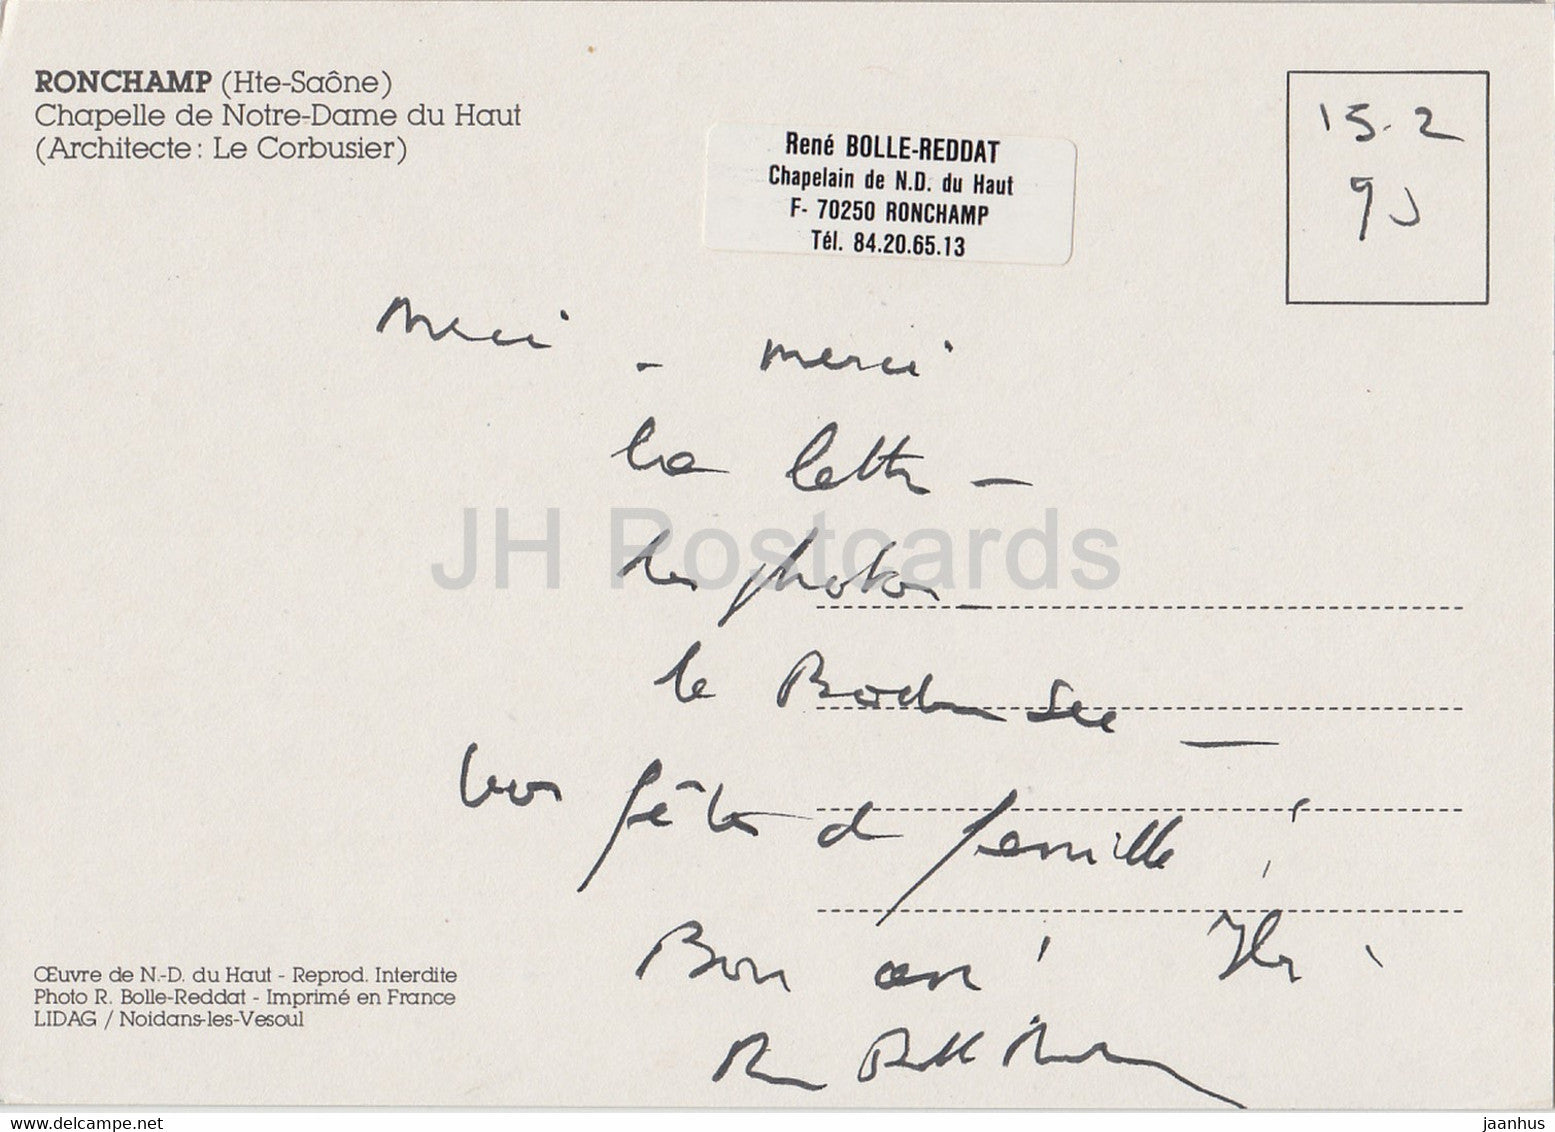 RONCHAMP (Hte-Saône)
Chapelle de Notre-Dame du Haut
(Architecte : Le Corbusier)
René BOLLE-REDDAT
Chapelain de N.D. du Haut
F- 70250 RONCHAMP
Tél. 84.20.65.13
15.2
Merci - merci
la lettre -
les photos -
le Bodensee -
vos fêtes de famille !
Bon an !
René Bolle Reddat
Œuvre de N.-D. du Haut - Reprod. Interdite
Photo R. Bolle-Reddat - Imprimé en France
LIDAG / Noidans-les-Vesoul
JH Postcards
www.delcampe.net
jaanhus